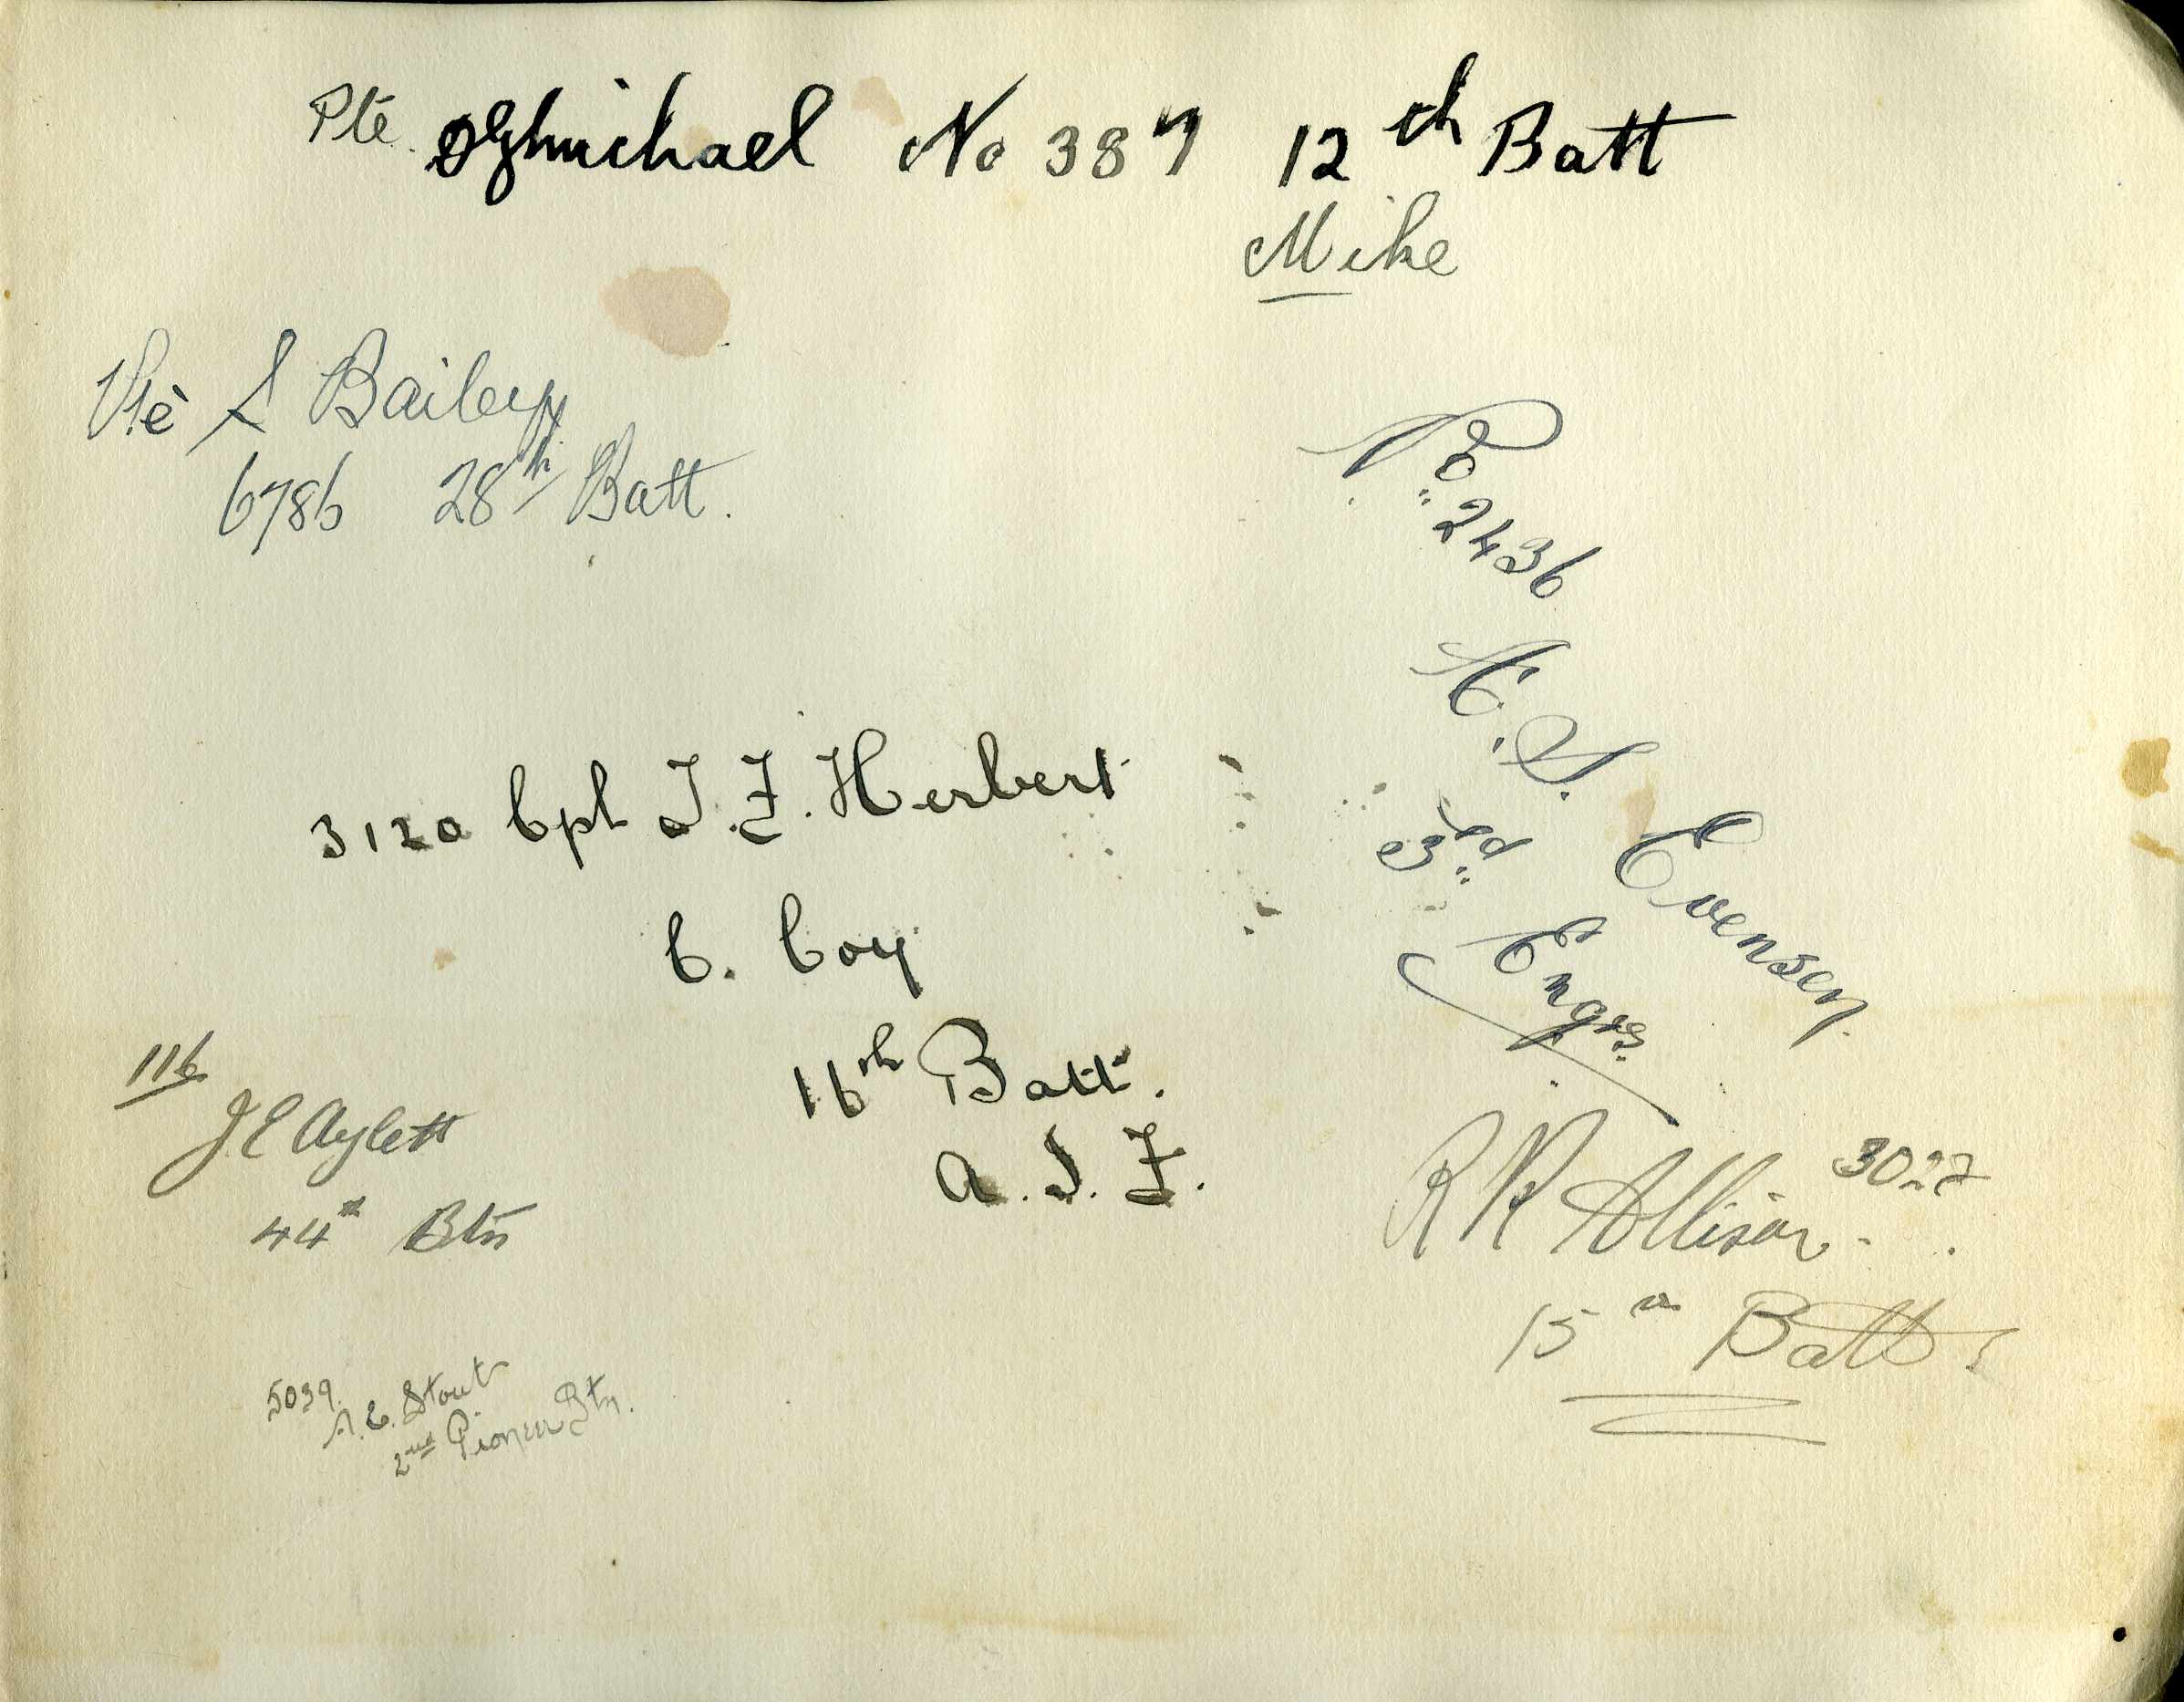 Pte michael No 387 12th Batt
Mike
Pte S Bailey
6786 28th Batt.
No 2436
A. S. Evensen.
3rd Engrs.
3120 Cpl J. F. Herbert
C. Coy
16th Batt.
A. I. F.
116
J E Aylett
44th Btn
R R Allison 3027
15th Batt
5039.
A. E. Stout
2nd Pioneer Btn.